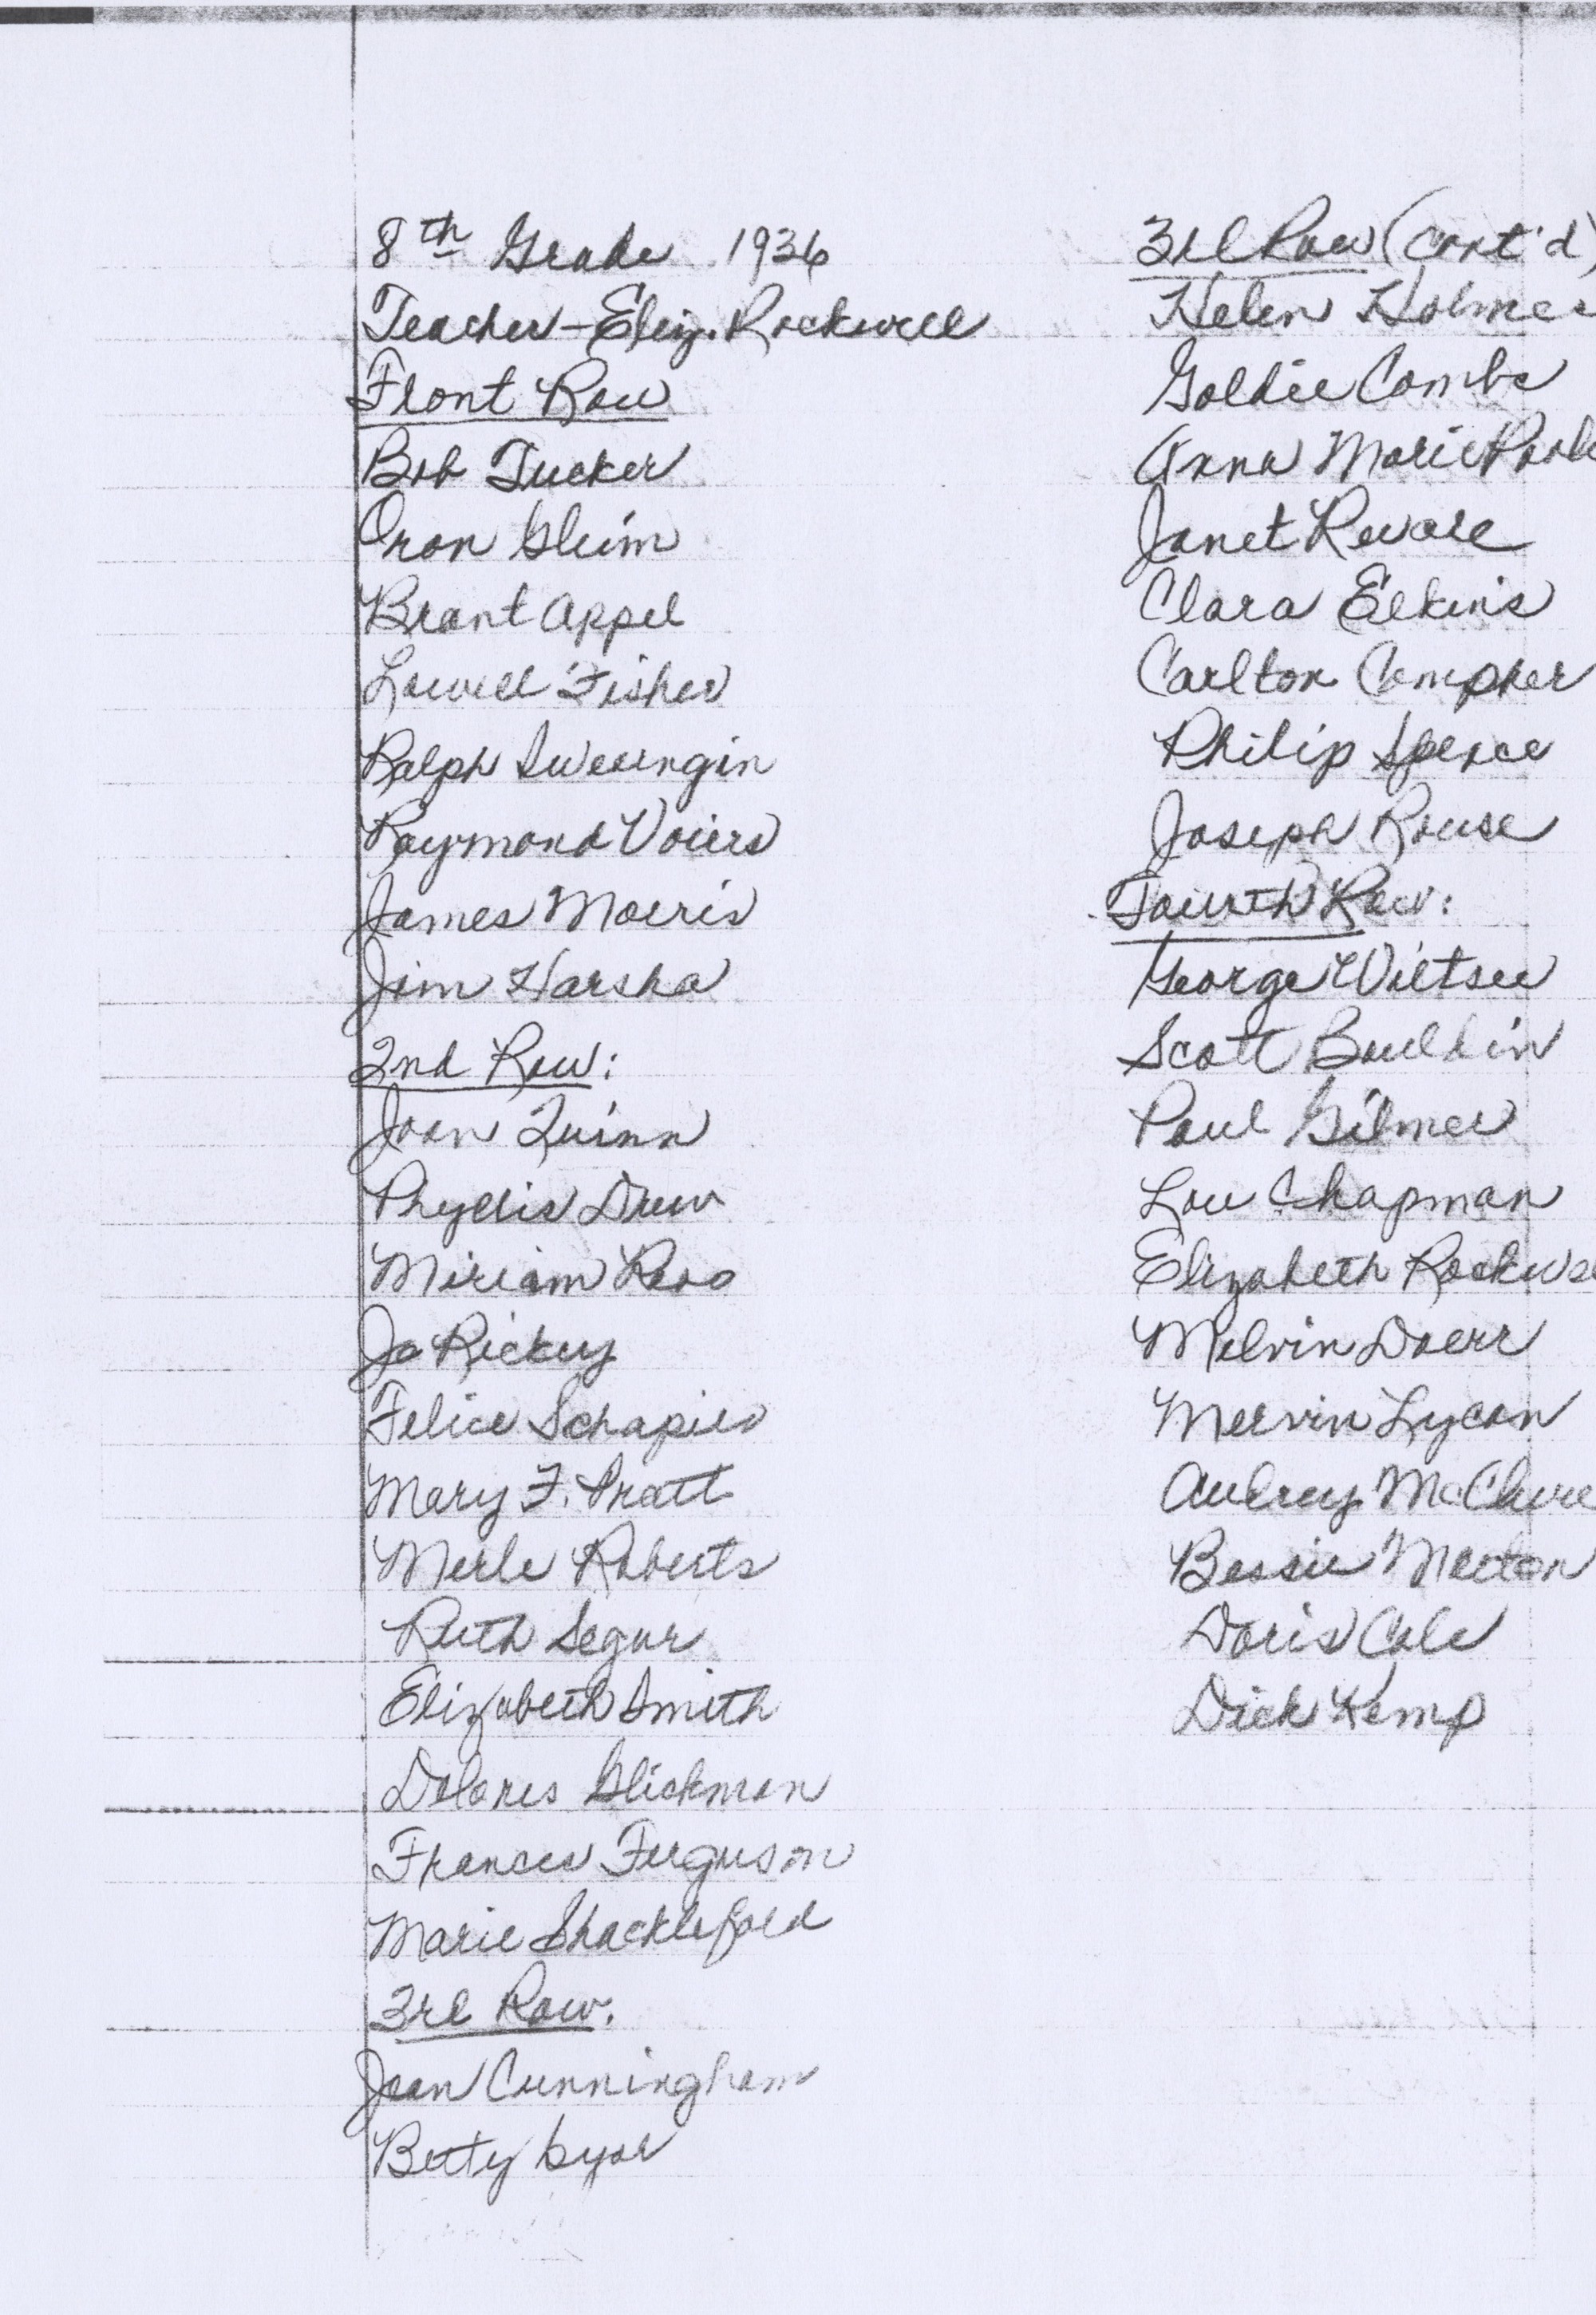 8th Grade 1936
Teacher - Eliz. Rockwell
Front Row
Bob Tucker
Oron Gleim
Brant Appel
Lowell Fisher
Ralph Swearngin
Raymond Voiers
James Morris
Jim Harsha
2nd Row:
Joan Quinn
Phyllis Drew
Miriam
Jo Rickey
Felice Schapiro
Mary F. Pratt
Merle Roberts
Ruth Segur
Elizabeth Smith
Dolores Glickman
Frances Ferguson
Marie Shackleford
3rd Row.
Joan Cunningham
Betty
3rd Row (cont'd)
Helen Holmes
Goldie Combs
Anna Marie
Janet Revare
Clara Elkins
Carlton Compher
Philip Spence
Joseph Rouse
Fourth Row:
George Wiltsee
Scott Bouldin
Paul Gilmer
Lou Chapman
Elizabeth Rockwe
Melvin Doerr
Mervin Lycan
Audrey McClure
Bessie Morton
Doris Cole
Dick Kemp